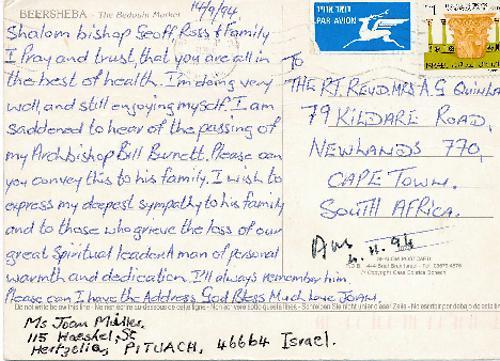 BEERSHEBA - The Bedouin Market
14/9/94
Shalom bishop Geoff, Ross & family
I Pray and trust, that you are all in
the best of health. I'm doing very
well, and still enjoying myself. I am
saddened to hear of the passing of
my Archbishop Bill Burnett. Please can
you convey this to his family. I wish to
express my deepest sympathy to his family
and to those who grieve the loss of our
great Spiritual leader. A man of personal
warmth and dedication. I'll always remember him.
Please can I have the Address. God Bless Much love JOAN.
Do not write below this line
Ms Joan
115 Haeshel St
Hertzelia, PITUACH, 46664 Israel.
דואר אויר
PAR AVION
ISRAEL
To
THE RT. REVD. MRS A G QUINLA
79 KILDARE ROAD,
NEWLANDS 770,
CAPE TOWN.
SOUTH AFRICA.
Ans
PALPHOT POST CARD